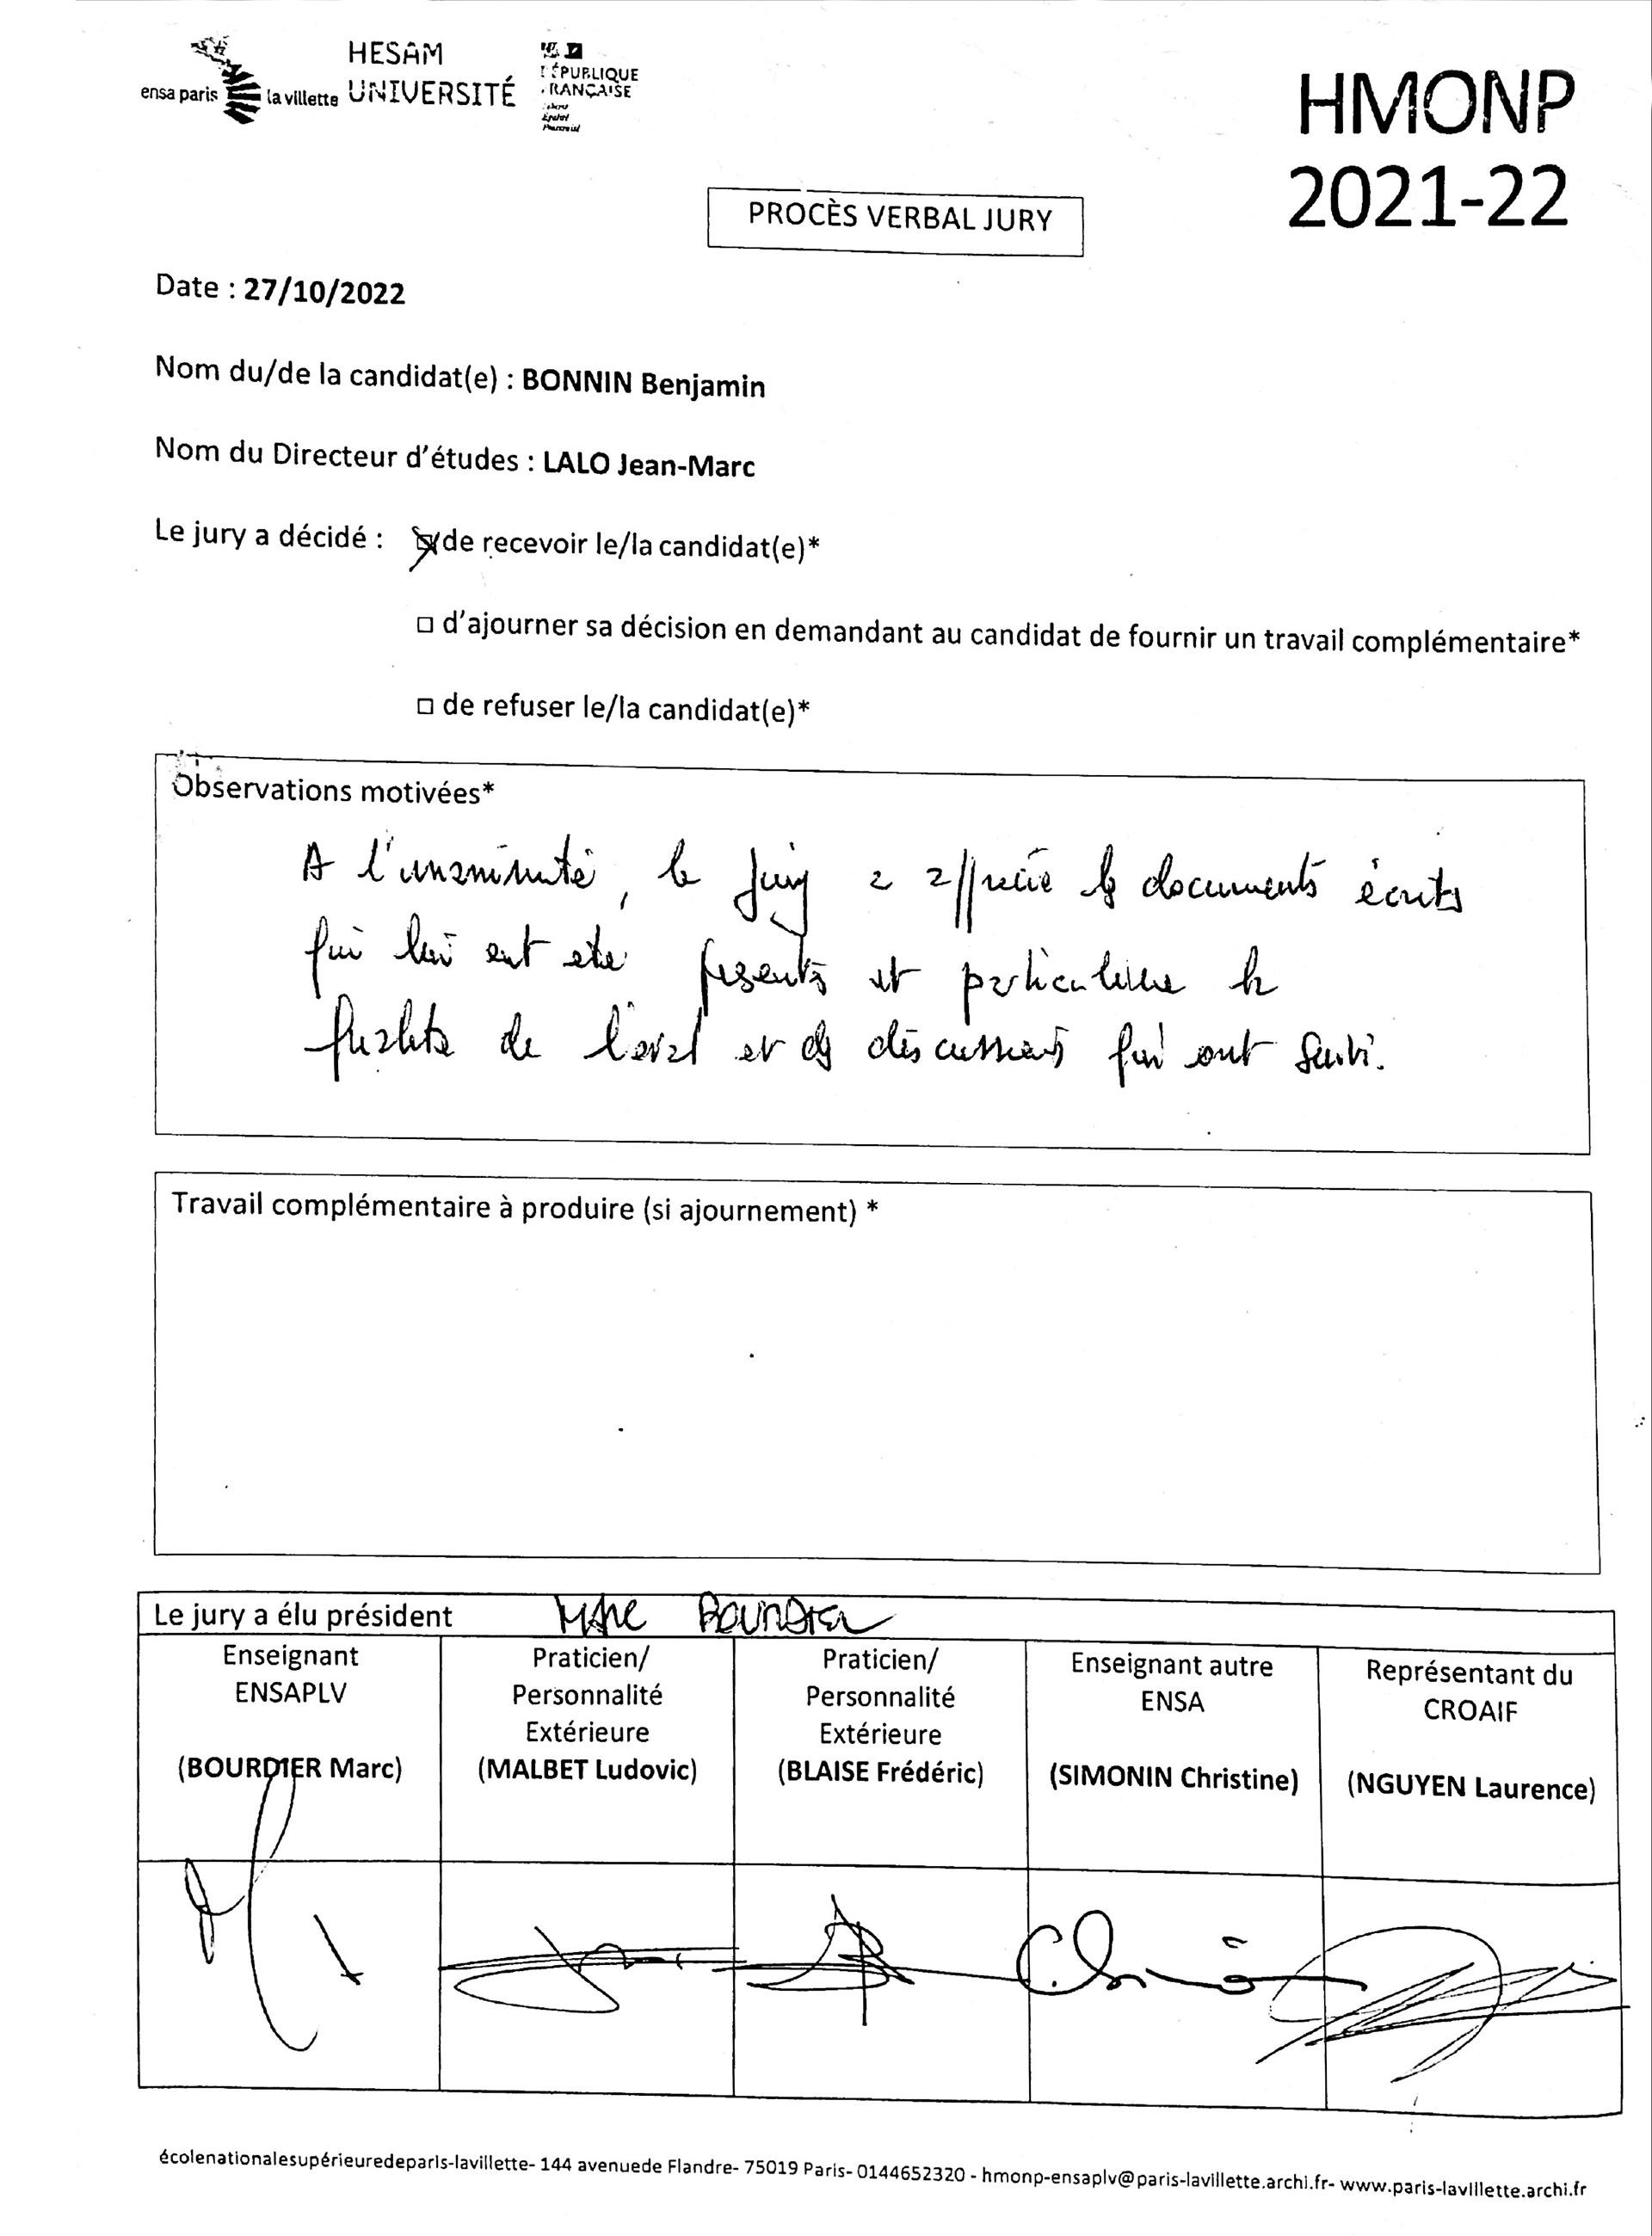 ensa paris la villette
HESAM
UNIVERSITÉ
RÉPUBLIQUE
FRANÇAISE
HMONP
2021-22
PROCÈS VERBAL JURY
Date : 27/10/2022
Nom du/de la candidat(e) : BONNIN Benjamin
Nom du Directeur d'études : LALO Jean-Marc
Le jury a décidé : de recevoir le/la candidat(e)*
□ d'ajourner sa décision en demandant au candidat de fournir un travail complémentaire*
□ de refuser le/la candidat(e)*
Observations motivées*
A l'unanimité, le jury a apprécié les documents écrits
qui lui ont été présentés et particulière la
qualité de l'oral et des discussions qui ont suivi.
Travail complémentaire à produire (si ajournement) *
Le jury a élu président Marc BOURDIER
Enseignant
ENSAPLV
(BOURDIER Marc)
Praticien/
Personnalité
Extérieure
(MALBET Ludovic)
Praticien/
Personnalité
Extérieure
(BLAISE Frédéric)
Enseignant autre
ENSA
(SIMONIN Christine)
Représentant du
CROAIF
(NGUYEN Laurence)
écolenationalesupérieuredeparis-lavillette- 144 avenuede Flandre- 75019 Paris- 0144652320 - hmonp-ensaplv@paris-lavillette.archi.fr- www.paris-lavillette.archi.fr